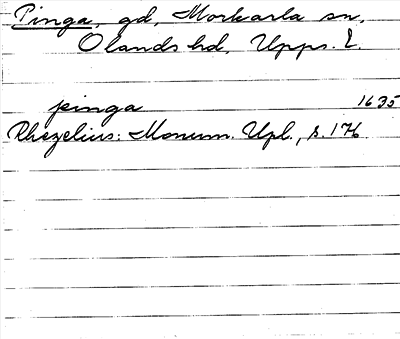 Pinga, gd, Morkarla sn,
Olands hd, Upps. l.
pinga 1635
Rhezelius: Monum. Upl., s. 176